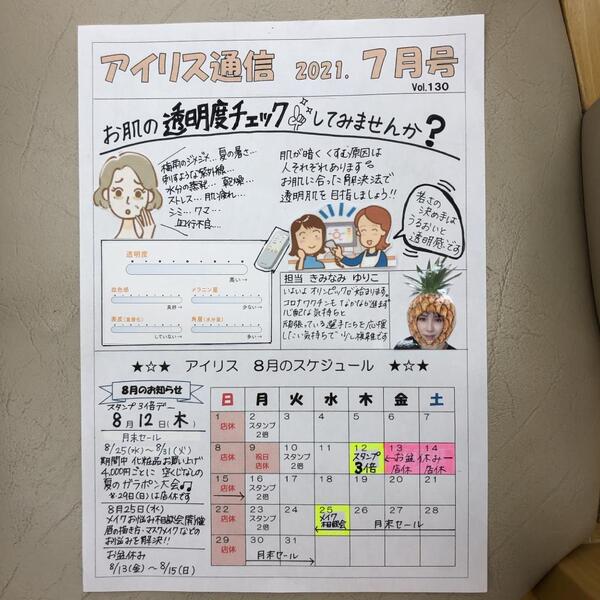 アイリス通信 2021. 7月号
Vol.130
お肌の透明度チェックしてみませんか?
梅雨のジメジメ… 夏の暑さ…
刺すような紫外線…
水分の蒸発… 乾燥…
ストレス… 肌疲れ…
シミ… クマ…
血行不良…
肌が暗くくすむ原因は
人それぞれあります
お肌に合った解決法で
透明肌を目指しましょう!!
若さの
決め手は
うるおいと
透明感です
透明度
高い→
血色感
良好→
メラニン量
少ない→
表皮(重層化)
していない→
角層(水分量)
多い→
担当 きみなみ ゆりこ
いよいよオリンピックが始まります。
コロナワクチンもなかなか進まず
心配な気持ちと
頑張っている選手たちを応援
したい気持ちで少し複雑です
★☆★ アイリス 8月のスケジュール ★☆★
8月のお知らせ
スタンプ3倍デー
8月12日(木)
月末セール
8/25(水)〜8/31(火)
期間中 化粧品お買い上げ
4,000円ごとに 空くじなしの
夏のガラポン大会♪♪
※29日(日)は店休です
8月25日(水)
メイクお悩み相談会開催
眉の描き方・マスクメイクなどの
お悩みを解決!!
お盆休み
8/13(金)〜8/15(日)
日 月 火 水 木 金 土
1 2 3 4 5 6 7
店休 スタンプ2倍
8 9 10 11 12 13 14
店休 祝日店休 スタンプ2倍 スタンプ3倍 ←お盆休み─
店休 店休
15 16 17 18 19 20 21
店休→ スタンプ2倍
22 23 24 25 26 27 28
店休 スタンプ2倍 メイク相談会 月末セール
29 30 31
店休 月末セール→